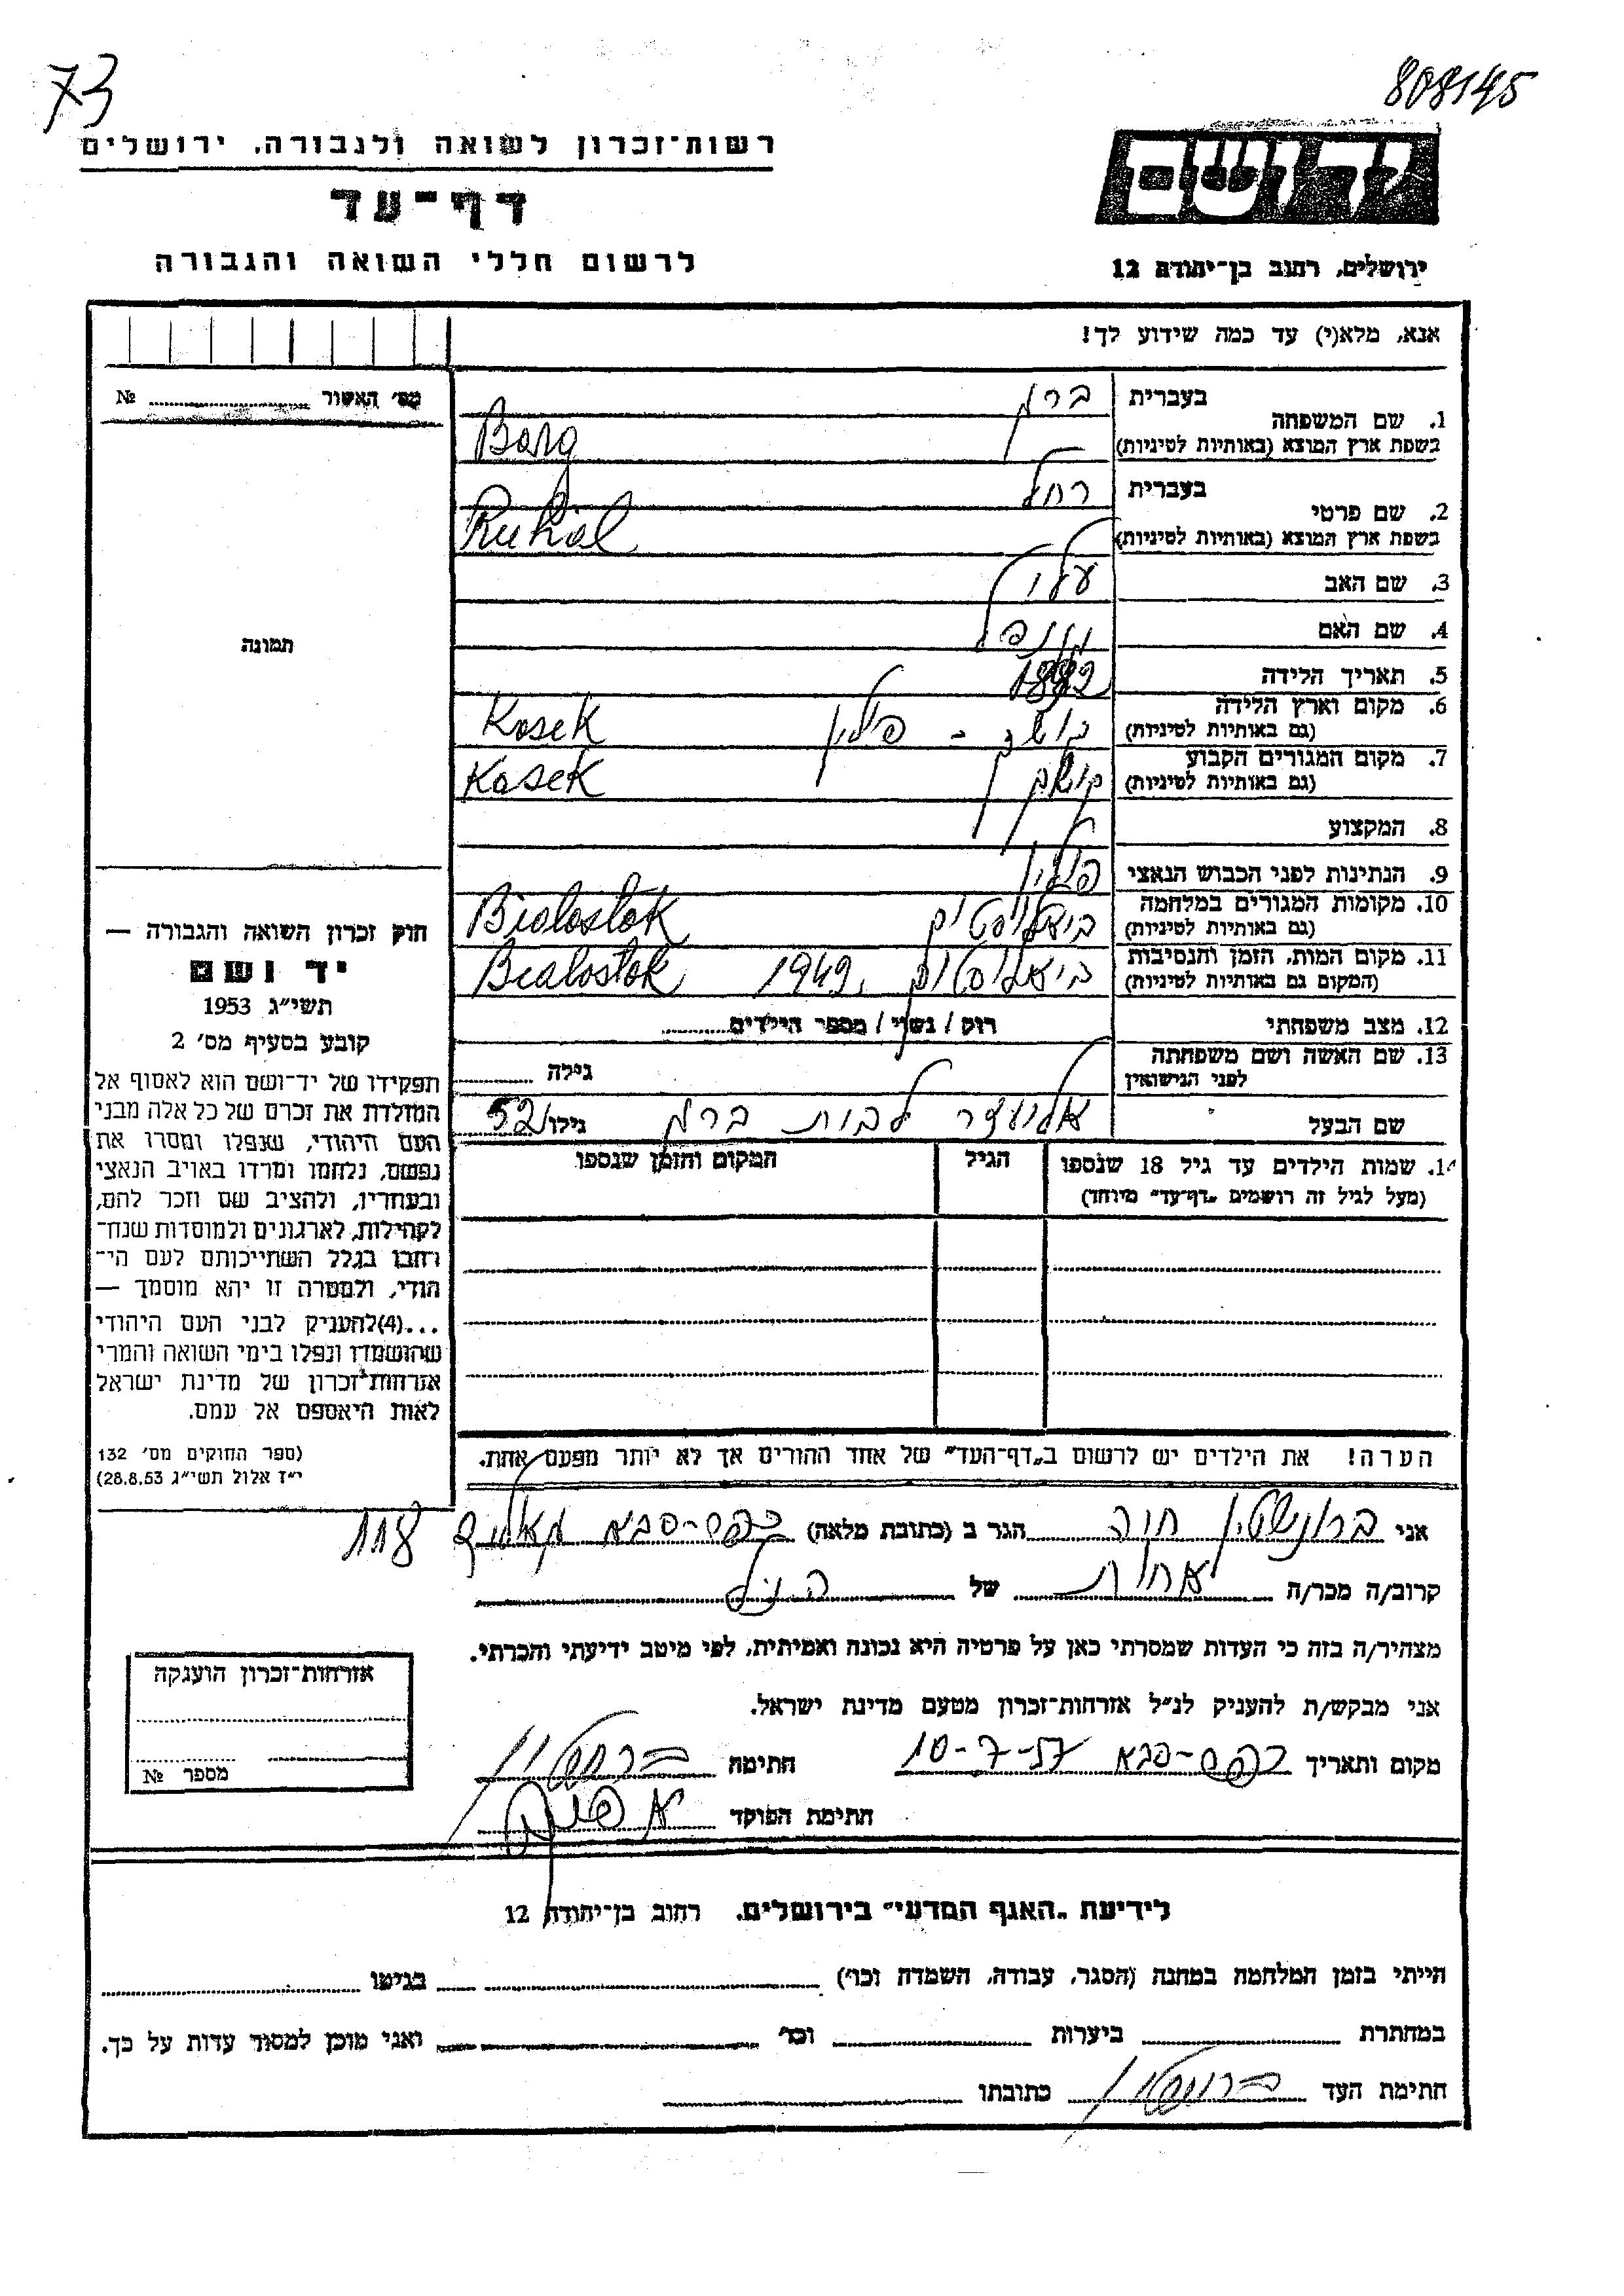 73
808145
רשות־זכרון לשואה ולגבורה, ירושלים
יד ושם
דף־עד
לרשום חללי השואה והגבורה
ירושלים, רחוב בן־יהודה 12
אנא, מלא(י) עד כמה שידוע לך!
מס׳ האשור № 
1. שם המשפחה
בעברית ברג
בשפת ארץ המוצא (באותיות לטיניות) Barg
2. שם פרטי
בעברית רחל
בשפת ארץ המוצא (באותיות לטיניות) Ruhal
3. שם האב
4. שם האם
תמונה
5. תאריך הלידה
6. מקום וארץ הלידה
(גם באותיות לטיניות) פולין Kosek
7. מקום המגורים הקבוע
(גם באותיות לטיניות) Kosek
8. המקצוע
9. הנתינות לפני הכבוש הנאצי פולין
10. מקומות המגורים במלחמה
(גם באותיות לטיניות) ביאליסטוק Bialostok
11. מקום המות, הזמן והנסיבות
(המקום גם באותיות לטיניות) ביאליסטוק 1942 Bialostok
12. מצב משפחתי רוק / נשוי / מספר הילדים
13. שם האשה ושם משפחתה
לפני הנישואין גילה
שם הבעל ברג גילו 52
14. שמות הילדים עד גיל 18 שנספו
(מעל לגיל זה רושמים „דף־עד" מיוחד)
הגיל
המקום והזמן שנספו
חוק זכרון השואה והגבורה —
יד ושם
תשי״ג 1953
קובע בסעיף מס׳ 2
תפקידו של יד־ושם הוא לאסוף אל
המולדת את זכרם של כל אלה מבני
העם היהודי, שנפלו ומסרו את
נפשם, נלחמו ומרדו באויב הנאצי
ובעוזריו, ולהציב שם וזכר להם,
לקהילות, לארגונים ולמוסדות שנח־
רבו בגלל השתייכותם לעם הי־
הודי, ולמטרה זו יהא מוסמך —
...(4) להעניק לבני העם היהודי
שהושמדו ונפלו בימי השואה והמרי
אזרחות־זכרון של מדינת ישראל
לאות היאספם אל עמם.
(ספר החוקים מס׳ 132
י״ז אלול תשי״ג 28.8.53)
הערה! את הילדים יש לרשום ב„דף־העד" של אחד ההורים אך לא יותר מפעם אחת.
אני ברונשטין חיה הגר ב (כתובת מלאה) כפר-סבא 118
קרוב/ה מכר/ה אחות של הנ״ל
מצהיר/ה בזה כי העדות שמסרתי כאן על פרטיה היא נכונה ואמיתית, לפי מיטב ידיעתי והכרתי.
אני מבקש/ת להעניק לנ״ל אזרחות־זכרון מטעם מדינת ישראל.
מקום ותאריך כפר-סבא 10-7-57 חתימה ברונשטין
חתימת הפוקד
אזרחות־זכרון הוענקה
מספר №
לידיעת „האגף המדעי" בירושלים, רחוב בן־יהודה 12
הייתי בזמן המלחמה במחנה (הסגר, עבודה, השמדה וכו׳) בגיטו
במחתרת ביערות וכו׳ ואני מוכן למסור עדות על כך.
חתימת העד ברונשטין כתובתו